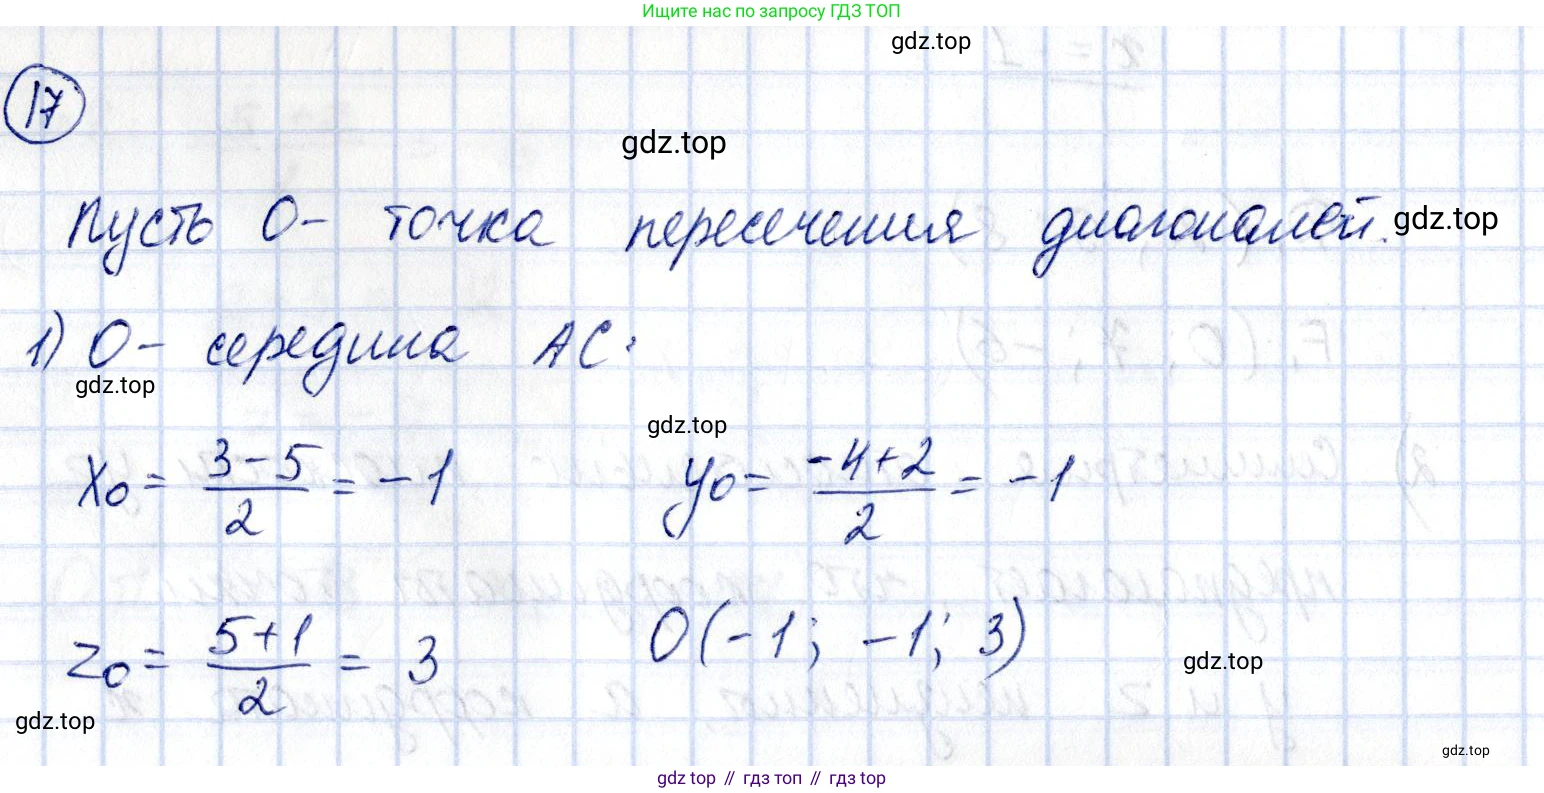 Ищите нас по запросу ГДЗ ТОП
gdz.top
17
gdz.top
Пусть О- точка пересечения диагоналей.
gdz.top
1) О- середина АС:
gdz.top
gdz.top
x₀ = (3-5)/2 = -1 y₀ = (-4+2)/2 = -1
z₀ = (5+1)/2 = 3 О(-1; -1; 3)
gdz.top
gdz.top
gdz.top
gdz top // гдз топ // gdz top